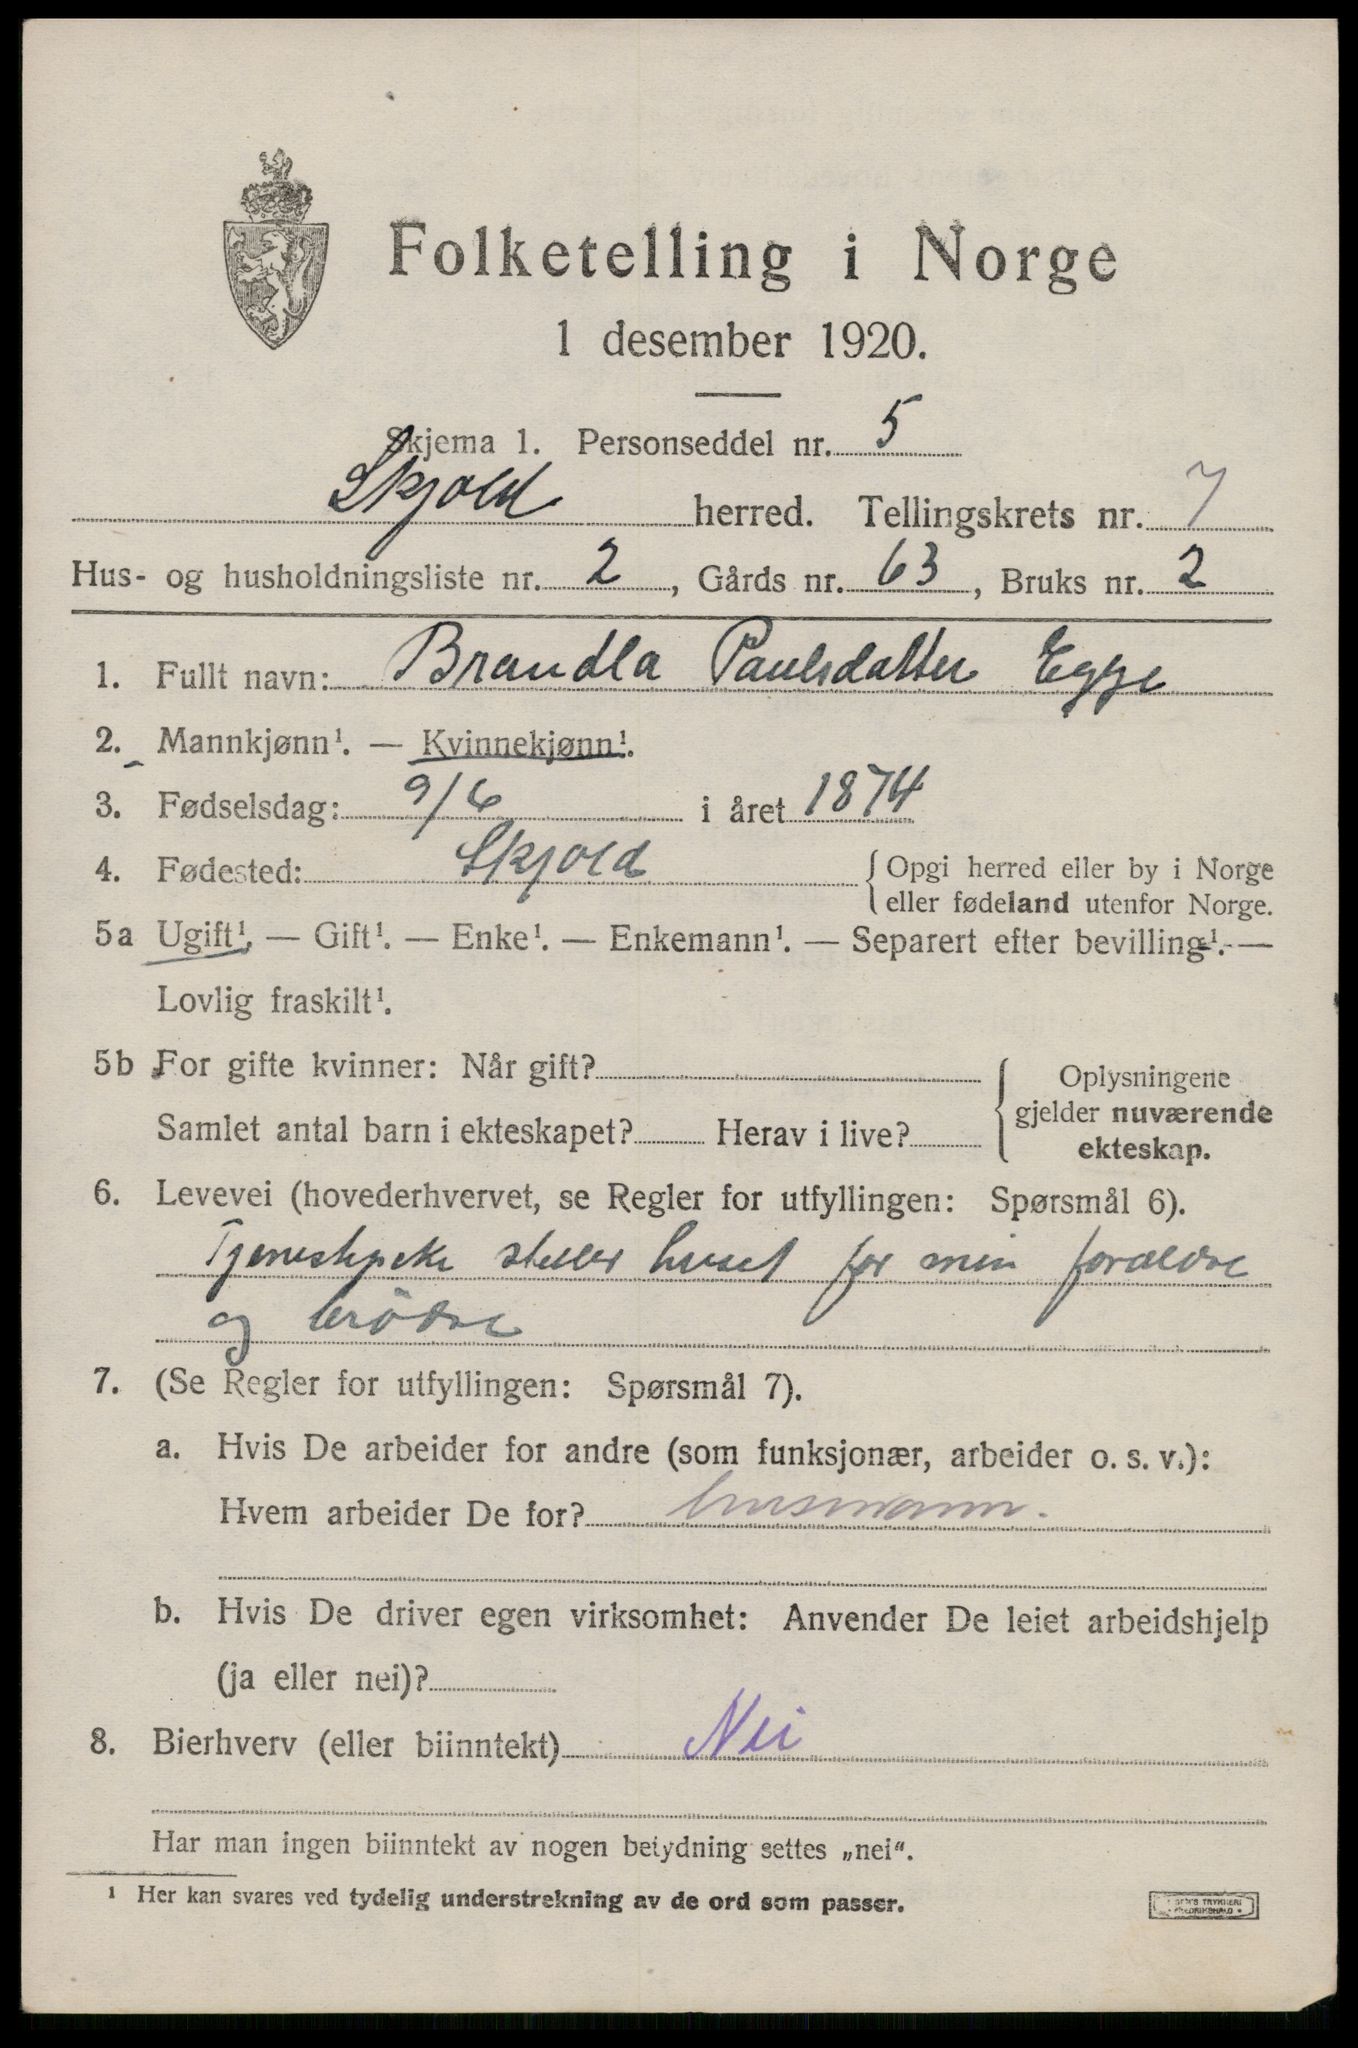 Folketelling i Norge
1 desember 1920.
Skjema 1. Personseddel nr. 5
Skjold herred. Tellingskrets nr. 7
Hus- og husholdningsliste nr. 2, Gårds nr. 63, Bruks nr. 2
1. Fullt navn: Brandla Paulsdatter Egge
2. Mannkjønn¹. — Kvinnekjønn¹.
3. Fødselsdag: 9/6 i året 1874
4. Fødested: Skjold { Opgi herred eller by i Norge
eller fødeland utenfor Norge.
5a Ugift¹. — Gift¹. — Enke¹. — Enkemann¹. — Separert efter bevilling¹. —
Lovlig fraskilt¹.
5b For gifte kvinner: Når gift? { Oplysningene
gjelder nuværende
Samlet antal barn i ekteskapet? Herav i live?
ekteskap.
6. Levevei (hovederhvervet, se Regler for utfyllingen: Spørsmål 6).
steller huset for min forældre
og brödre
7. (Se Regler for utfyllingen: Spørsmål 7).
a. Hvis De arbeider for andre (som funksjonær, arbeider o. s. v.):
Hvem arbeider De for? husmann.
b. Hvis De driver egen virksomhet: Anvender De leiet arbeidshjelp
(ja eller nei)?
8. Bierhverv (eller biinntekt) Nei
Har man ingen biinntekt av nogen betydning settes „nei“.
¹ Her kan svares ved tydelig understrekning av de ord som passer.
TRYKKERI
FREDRIKSHALD